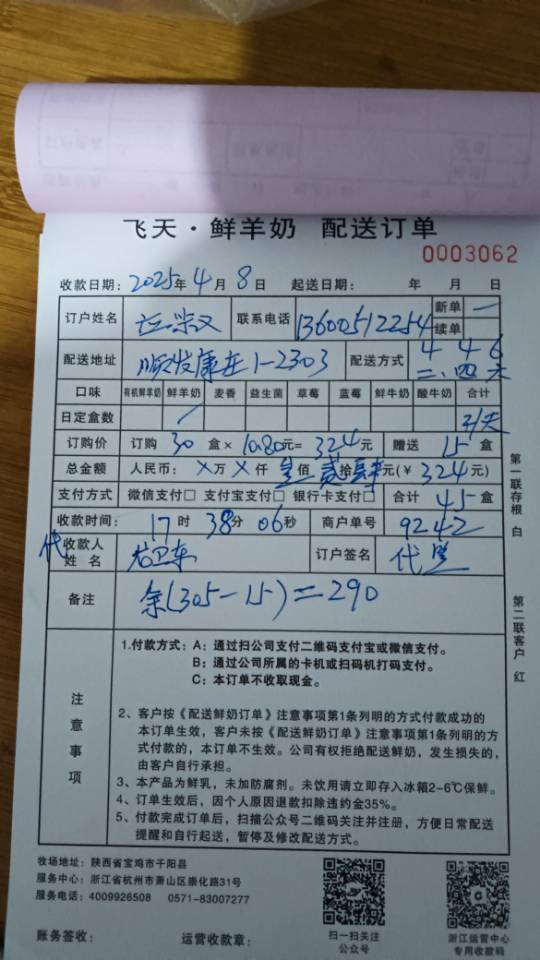 飞天·鲜羊奶 配送订单
0003062
收款日期：2025年4月8日 起送日期： 年 月 日
订户姓名 联系电话 13600512254 新单 一
续单
配送地址 顺发康庄1-2303 配送方式 4 4 6
二、四、六
口味 有机鲜羊奶 鲜羊奶 麦香 益生菌 草莓 蓝莓 鲜牛奶 酸牛奶 合计
日定盒数
订购价 订购 30 盒× 10.80元= 324元 赠送 15 盒
总金额 人民币： ×万×仟叁佰贰拾肆元(￥324元)
支付方式 微信支付□ 支付宝支付□ 银行卡支付□ 合计 45 盒
收款时间： 17时 38分 06秒 商户单号 9242
代收款人
姓 名 订户签名 代
备注 余(305-15)=290
注意事项
1.付款方式：A：通过扫公司支付二维码支付宝或微信支付。
B：通过公司所属的卡机或扫码机打码支付。
C：本订单不收取现金。
2、客户按《配送鲜奶订单》注意事项第1条列明的方式付款成功的
本订单生效，客户未按《配送鲜奶订单》注意事项第1条列明的方
式付款的，本订单不生效。公司有权拒绝配送鲜奶，发生损失的，
由客户自行承担。
3、本产品为鲜乳，未加防腐剂。未饮用请立即存入冰箱2-6℃保鲜。
4、订单生效后，因个人原因退款扣除违约金35%。
5、付款完成订单后，扫描公众号二维码关注并注册，方便日常配送
提醒和自行起送，暂停及修改配送方式。
第一联存根 白
第二联客户 红
牧场地址：陕西省宝鸡市千阳县
服务中心：浙江省杭州市萧山区崇化路31号
服务电话：4009926508 0571-83007277
账务签收： 运营收款章：
扫一扫关注
公众号
浙江运营中心
专用收款码